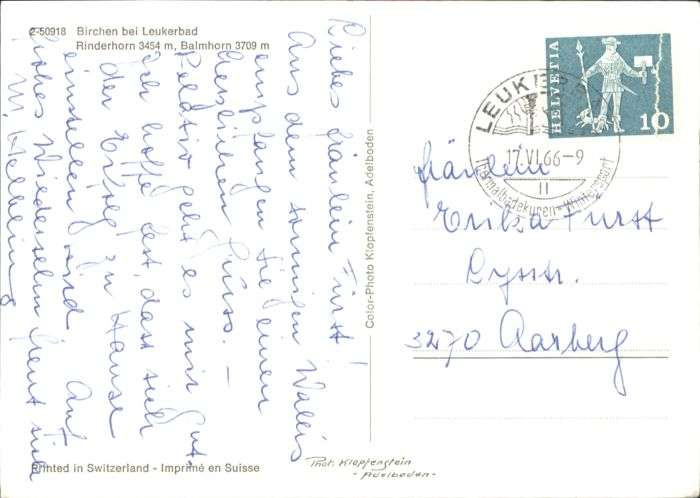 2-50918 Birchen bei Leukerbad
Rinderhorn 3454 m, Balmhorn 3709 m
Liebes Fräulein Fürst!
Aus dem sonnigen Wallis
empfangen Sie einen
herzlichen Gruss. –
Relativ geht es mir gut.
Ich hoffe fest, dass sich
der Erfolg zu Hause
einstellen wird. Auf
frohes Wiedersehn freut sich
Color-Photo Klopfenstein, Adelboden
HELVETIA
10
LEUKERBAD
17.VI.66-9
II
Thermalbadekuren-Wintersport
Fräulein
Erika Fürst
Lysstr.
3270 Aarberg
Printed in Switzerland - Imprimé en Suisse
Phot. Klopfenstein
- Adelboden -